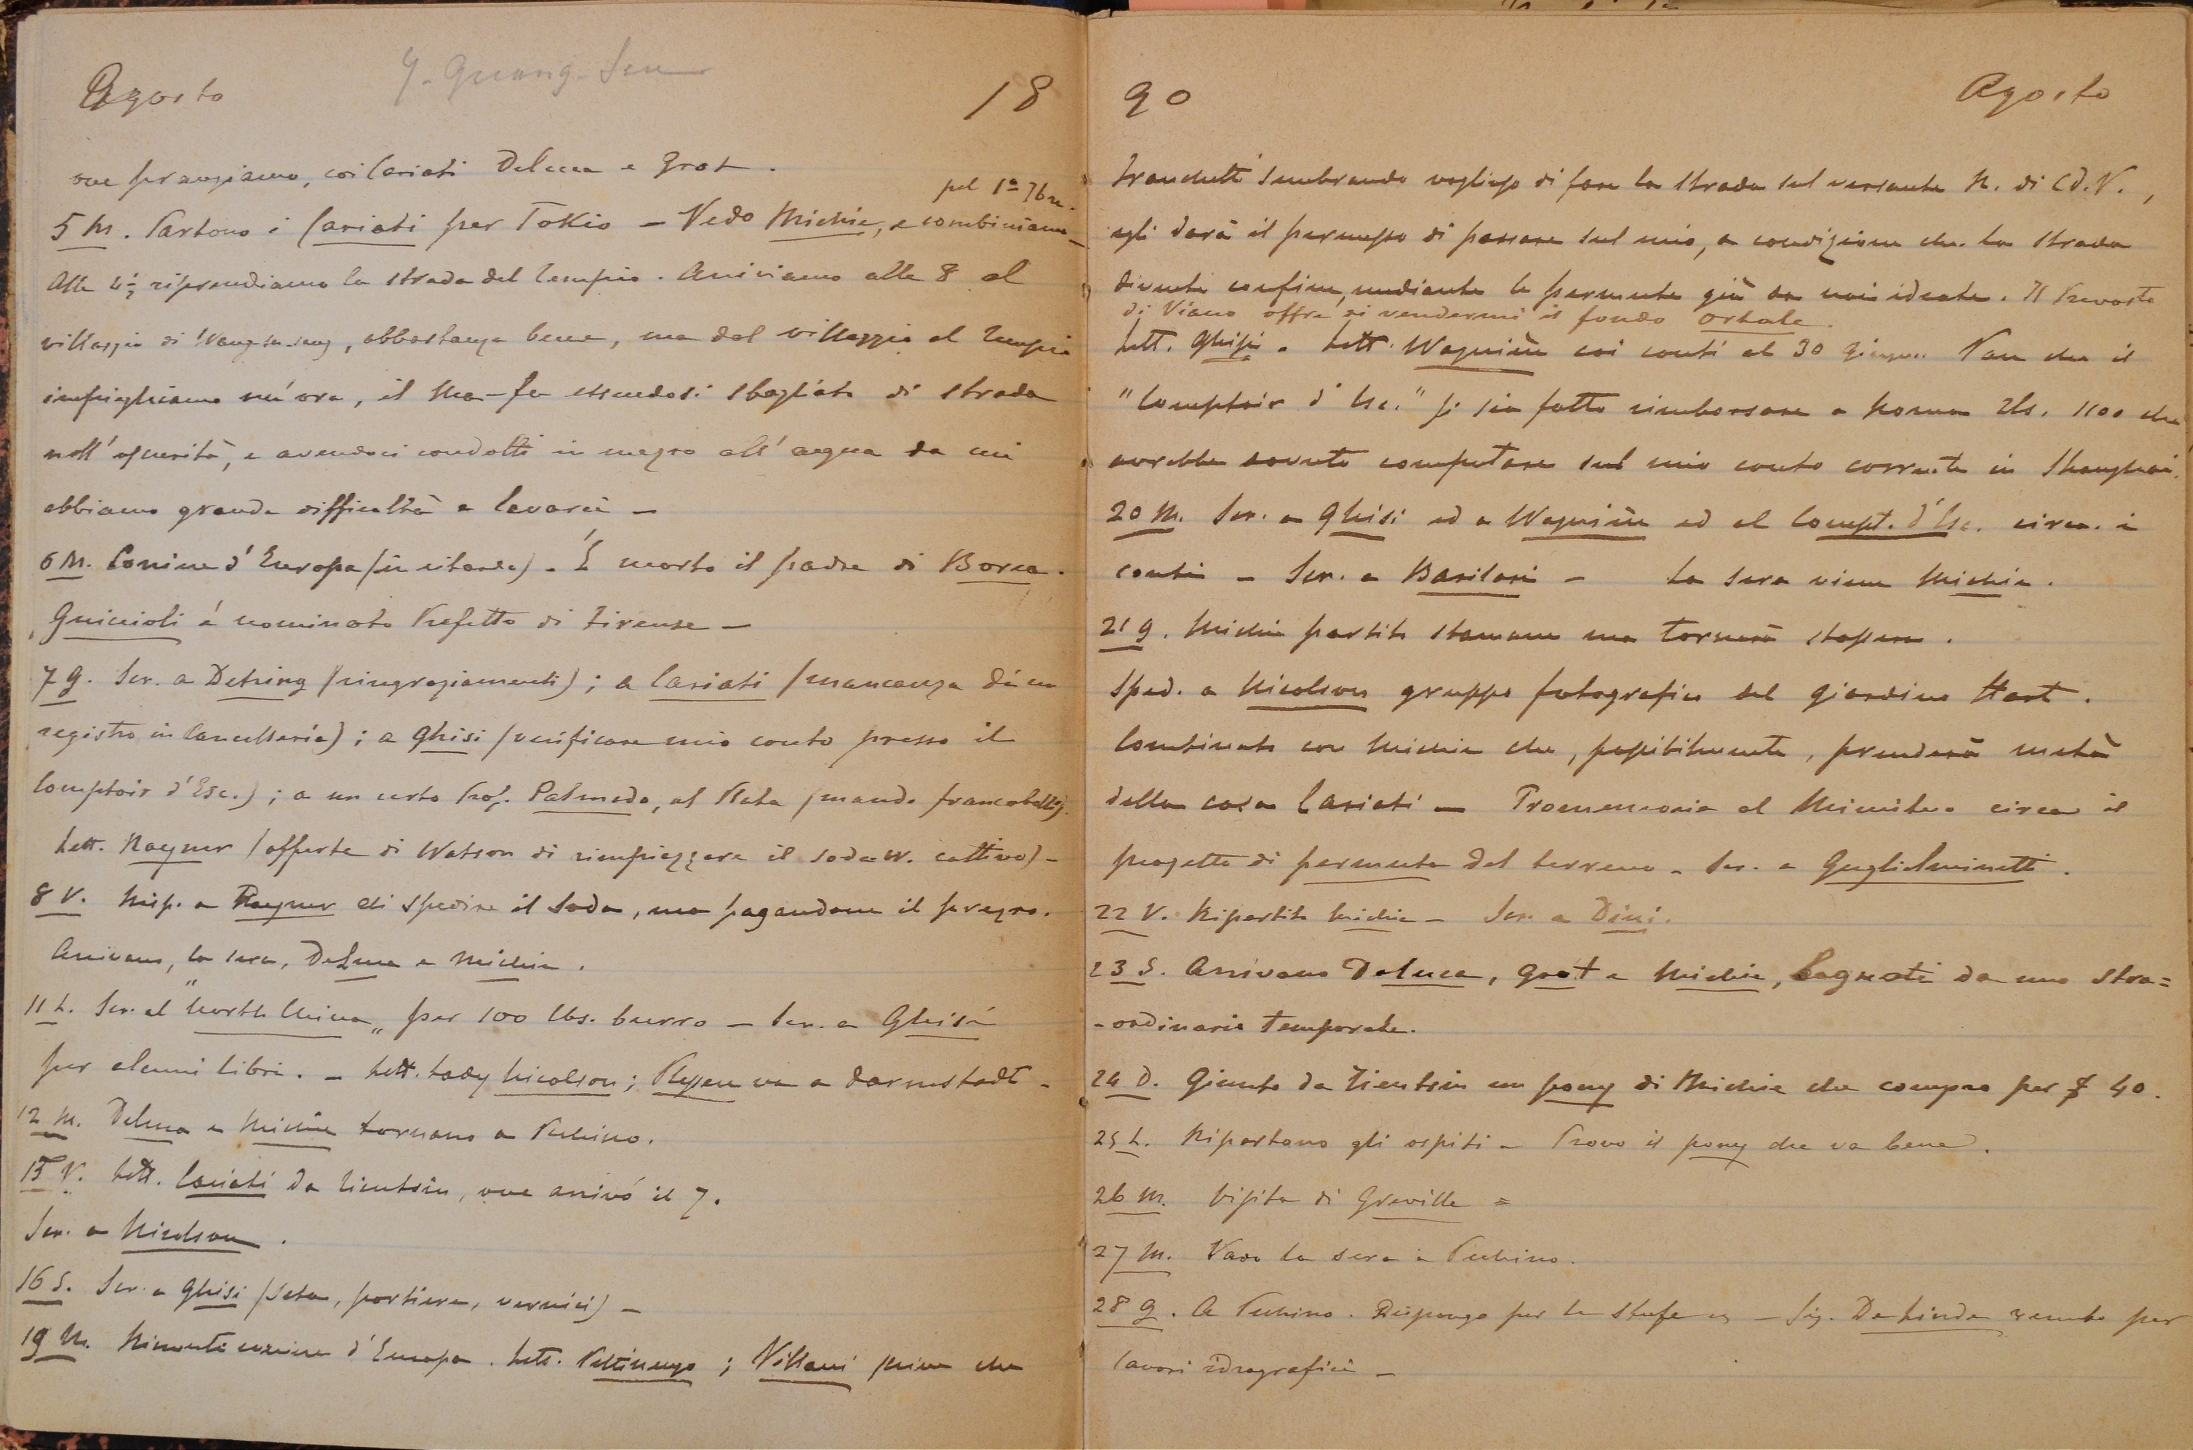 Agosto
18
ove pranziamo, coi Cariati Deluca e Grot.
pel 1º 7bre.
5 M. Partono i Cariati per Tokio – Vedo Michie, e combiniamo –
Alle 4½ riprendiamo la strada del Tempio. Arriviamo alle 8 al
villaggio di, abbastanza bene, ma dal villaggio al Tempio
impieghiamo un'ora, il Ma-fu essendosi sbagliato di strada
nell'oscurità, e avendoci condotti in mezzo all'acqua da cui
abbiamo grande difficoltà a levarci –
6 M. Corriere d'Europa (in ritardo). È morto il padre di Borea.
Guiccioli é nominato Prefetto di Firenze –
7 G. Scr. a Detring (ringraziamenti); a Cariati (mancanza di un
registro in Cancelleria); a Ghisi (verificare mio conto presso il
Comptoir d'Esc.); a un certo Prof. Palmedo, al Plata (mando francobolli).
Lett. Rayner (offerta di Watson di rimpiazzare il soda w. cattivo) –
8 V. Risp. a Rayner di spedire il soda, ma pagandone il prezzo.
Arrivano, la sera, Deluca e Michie.
11 L. Scr. al "North China" per 100 lbs. burro – Scr. a Ghisi
per alcuni libri. – Lett. Lady Nicolson; Plessen va a Darmstadt –
12 M. Deluca e Michie tornano a Pechino.
15 V. Lett. Cariati da Tientsin, ove arrivó il 7.
Scr. a Nicolson.
16 S. Scr. a Ghisi (seta, portiere, vernici) –
19 M. Rimonta corriere d'Europa. Lett. Pettinengo; Villani scrive che
90
Agosto
Franchetti sembrando voglioso di fare la strada sul versante N. di C.d.V.,
egli darà il permesso di passare sul mio, a condizione che la strada
diventi confine, mediante le permute già da noi ideate. Il Prevosto
di Viano offre di vendermi il fondo Ortale.
Lett. Ghisi. Lett. Wagnière coi conti al 30 Giugno. Pare che il
"Comptoir d'Esc." si sia fatto rimborsare a Roma Tls. 1100 che
avrebbe dovuto computare sul mio conto corrente in Shanghai.
20 M. Scr. a Ghisi ed a Wagnière ed al Compt. d'Esc. circa i
conti – Scr. a Basilari – La sera viene Michie.
21 G. Michie partito stamane ma tornerà stasera.
Sped. a Nicolson gruppo fotografico del giardino Hart.
Combinato con Michie che, possibilmente, prenderà metà
della casa Cariati – Promemoria al Ministro circa il
progetto di permuta del terreno – Scr. a Guglielminetti.
22 V. Ripartito Michie – Scr. a Dini.
23 S. Arrivano Deluca, Grot e Michie, bagnati da uno stra=
-ordinario temporale.
24 D. Giunto da Tientsin un pony di Michie che compro per $ 40.
25 L. Ripartono gli ospiti – Provo il pony che va bene.
26 M. Visita di Greville =
27 M. Vado la sera a Pechino.
28 G. A Pechino. Dispongo per le stufe – Sig. De Linde venuto per
lavori idrografici –